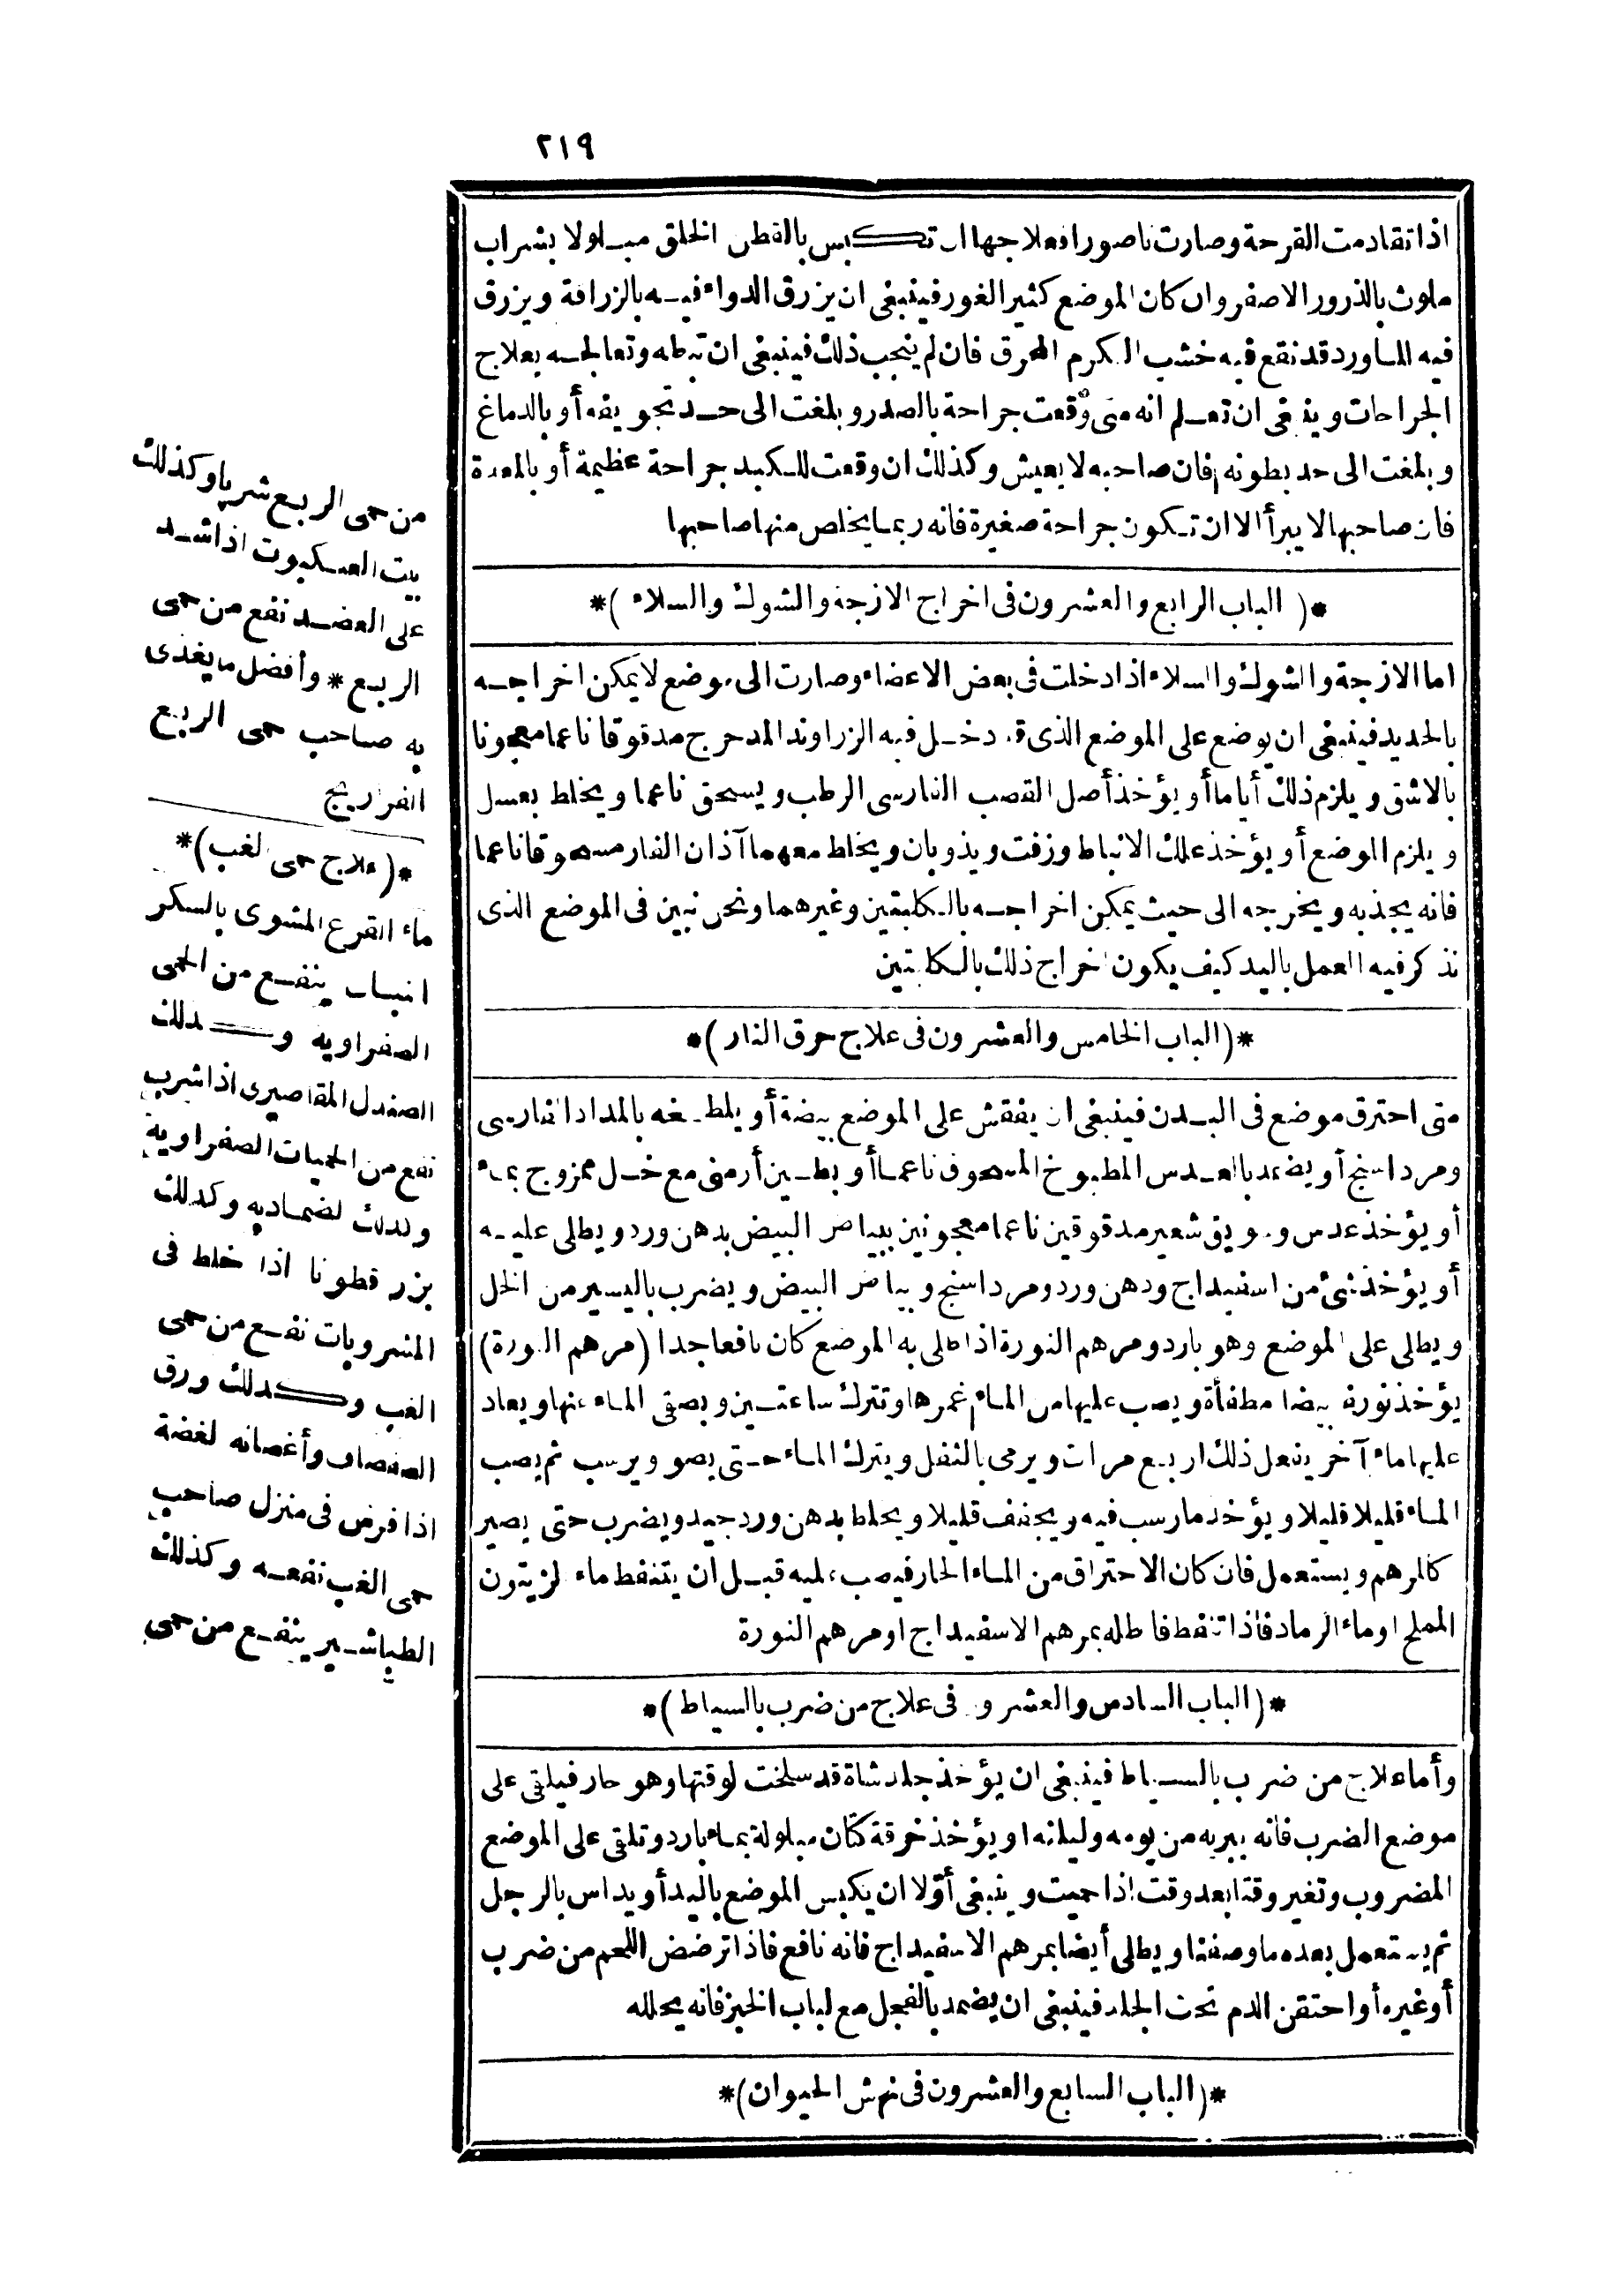 ٢١٩
اذا تقادمت القرحة وصارت ناصورا فعلاجها ان تكبس بالقطن الخلق مبلولا بشراب
ملوث بالذرور الاصفر وان كان الموضع كثير الغور فينبغى ان يزرق الدواء فيه بالزراقة ويزرق
فيه الماورد قد نقع فيه خشب الكرم المحرق فان لم ينجب ذلك فينبغى ان تبطه وتعالجه بعلاج
الجراحات وينبغى ان تعلم انه متى وقعت جراحة بالصدر وبلغت الى حد تجويفه أو بالدماغ
وبلغت الى حد بطونه فان صاحبه لا يعيش وكذلك ان وقعت للكبد جراحة عظيمة أو بالمعدة
فان صاحبها لا يبرأ الا ان تكون جراحة صغيرة فانه ربما يخلص منها صاحبها
*( الباب الرابع والعشرون فى اخراج الازجة والشوك والسلاء )*
اما الازجة والشوك والسلاء اذا دخلت فى بعض الاعضاء وصارت الى موضع لا يمكن اخراجه
بالحديد فينبغى ان يوضع على الموضع الذى قد دخل فيه الزراوند المدحرج مدقوقا ناعما معجونا
بالاشق ويلزم ذلك أياما أو يؤخذ أصل القصب الفارسى الرطب ويسحق ناعما ويخلط بعسل
ويلزم الموضع أو يؤخذ علك الانباط وزفت ويذوبان ويخلط معهما آذان الفار مسحوقا ناعما
فانه يجذبه ويخرجه الى حيث يمكن اخراجه بالكلبتين وغيرهما ونحن نبين فى الموضع الذى
نذكر فيه العمل باليد كيف يكون اخراج ذلك بالكلبتين
*( الباب الخامس والعشرون فى علاج حرق النار )*
متى احترق موضع فى البدن فينبغى ان يفقش على الموضع بيضة أو يلطخه بالمداد الفارسى
ومرداسنج أو يضمد بالعدس المطبوخ المسحوق ناعما أو بطين أرمنى مع خل ممزوج بماء
أو يؤخذ عدس وسويق شعير مدقوقين ناعما معجونين ببياض البيض بدهن ورد ويطلى عليه
أو يؤخذ شئ من اسفيداج ودهن ورد ومرداسنج وبياض البيض ويضرب باليسير من الخل
ويطلى على الموضع وهو بارد ومرهم النورة اذا طلى به الموضع كان نافعا جدا (مرهم النورة)
يؤخذ نورة بيضا مطفأة ويصب عليها من الماء غمرها وتترك ساعتين ويصفى الماء عنها ويعاد
عليها ماء آخر يفعل ذلك اربع مرات ويرمى بالثفل ويترك الماء حتى يصو ويرسب ثم يصب
الماء قليلا قليلا ويؤخذ ما رسب فيه ويجفف قليلا ويخلط بدهن ورد جيد ويضرب حتى يصير
كالمرهم ويستعمل فان كان الاحتراق من الماء الحار فيصب عليه قبل ان يتنفط ماء الزيتون
المملح او ماء الرماد فاذا تنفط فاطله بمرهم الاسفيداج او مرهم النورة
*( الباب السادس والعشرون فى علاج من ضرب بالسياط )*
وأما علاج من ضرب بالسياط فينبغى ان يؤخذ جلد شاة قد سلخت لوقتها وهو حار فيلقى على
موضع الضرب فانه يبريه من يومه وليلته او يؤخذ خرقة كتان مبلولة بماء بارد وتلقى على الموضع
المضروب وتغير وقتا بعد وقت اذا حميت وينبغى أولا ان يكبس الموضع باليد أو يداس بالرجل
ثم يستعمل بعده ما وصفنا ويطلى أيضا بمرهم الاسفيداج فانه نافع فاذا ترضض اللحم من ضرب
أو غيره أو احتقن الدم تحت الجلد فينبغى ان يضمد بالفجل مع لباب الخبز فانه يحلله
*( الباب السابع والعشرون فى نهش الحيوان)*
من حمى الربع شربا وكذلك
بيت العنكبوت اذا شد
على العضد نفع من حمى
الربع * وأفضل ما يغذى
به صاحب حمى الربع
الفراريج
*(علاج حمى الغب)*
ماء القرع المشوى بالسكر
ينفع من الحمى
الصفراوية وكذلك
الصندل المقاصيرى اذا شرب
نفع من الحميات الصفراوية
وكذلك الضماد به وكذلك
بزر قطونا اذا خلط فى
المشروبات نفع من حمى
الغب وكذلك ورق
الصفصاف وأغصانه الغضة
اذا فرش فى منزل صاحب
حمى الغب نفعه وكذلك
الطباشير ينفع من حمى